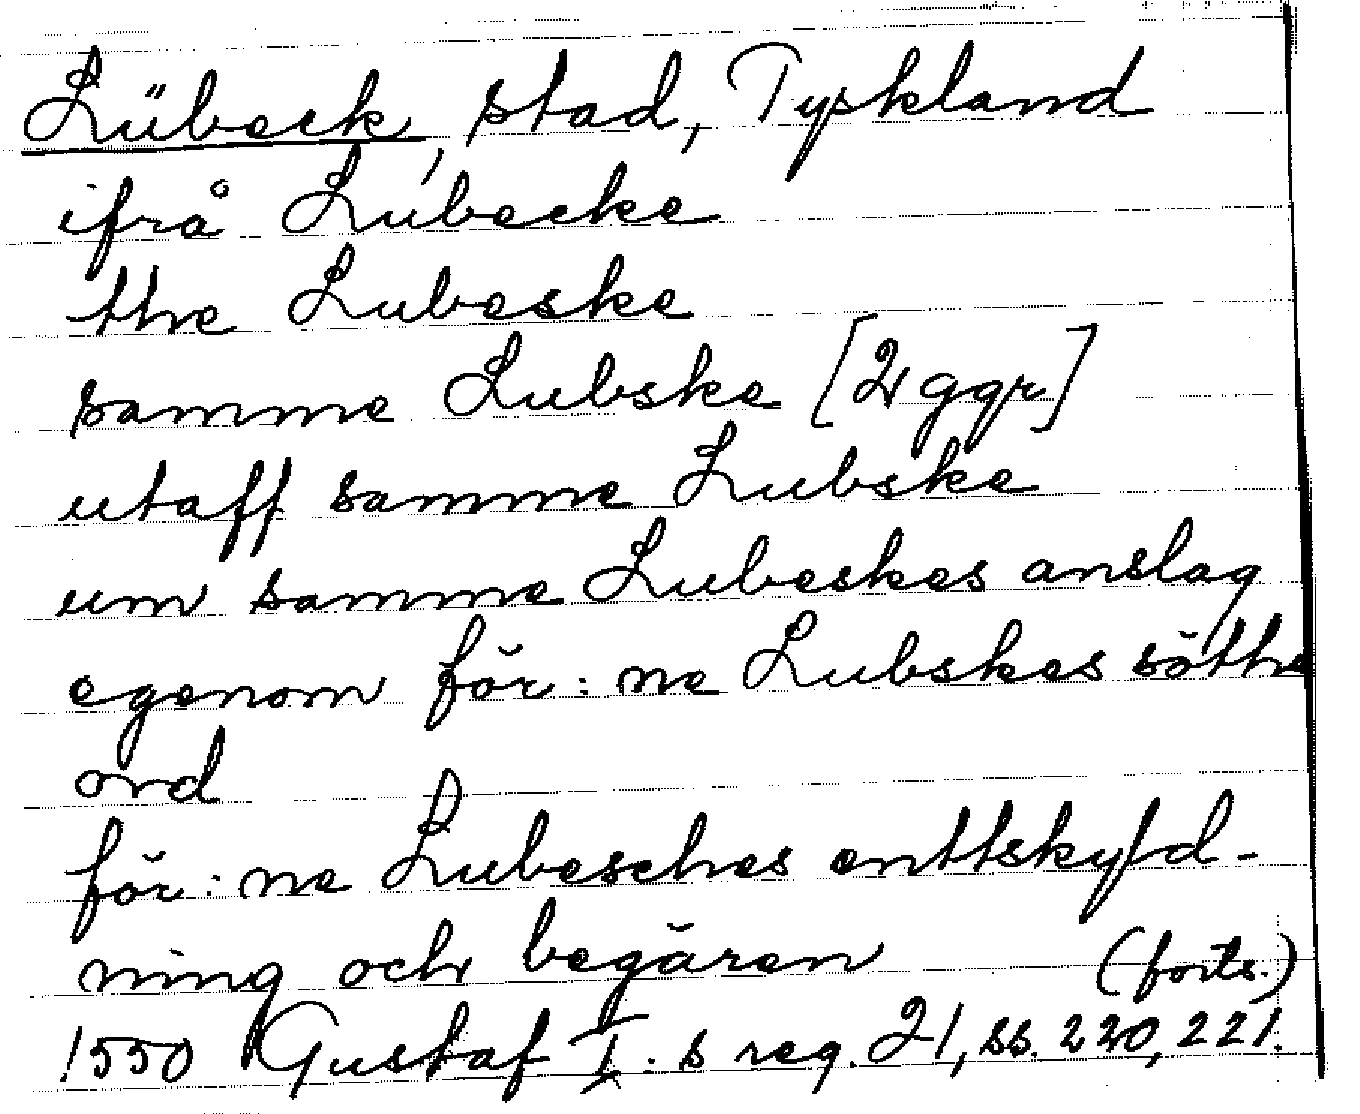 Lübeck, stad, Tyskland
ifrå Lubecke
the Lubeske
samme Lubske [2 ggr]
utaff samme Lubske
um samme Lubeskes anslag
egenom för:ne Lubskes söthe
ord
för:ne Lubesches enttskyld-
ning och begären (forts.)
1550 Gustaf I:s reg. 21, ss. 220, 221.